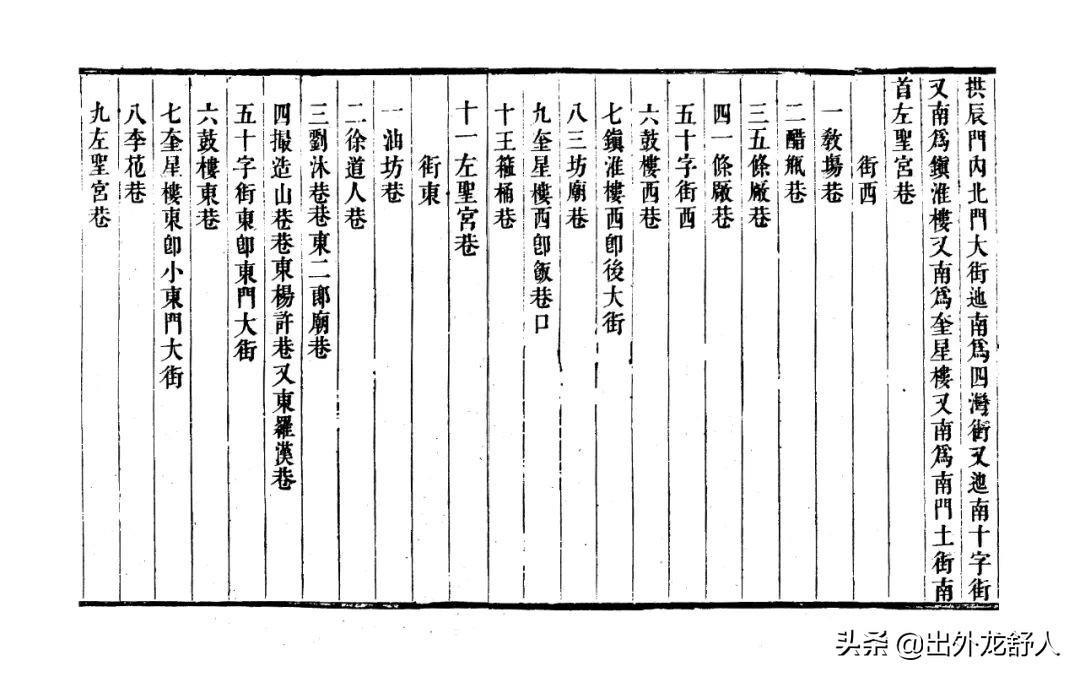 拱辰門內北門大街迤南爲四灣街又迤南十字街
又南爲鎭淮樓又南爲奎星樓又南爲南門土街南
首左聖宮巷
街西
一教場巷
二醋瓶巷
三五條厰巷
四一條厰巷
五十字街西
六鼓樓西巷
七鎭淮樓西卽後大街
八三坊廟巷
九奎星樓西卽飯巷口
十王箍桶巷
十一左聖宮巷
街東
一油坊巷
二徐道人巷
三劉沐巷巷東二郎廟巷
四撮造山巷巷東楊許巷又東羅漢巷
五十字街東卽東門大街
六鼓樓東巷
七奎星樓東卽小東門大街
八李范巷
九左聖宮巷
头条 @出外龙舒人